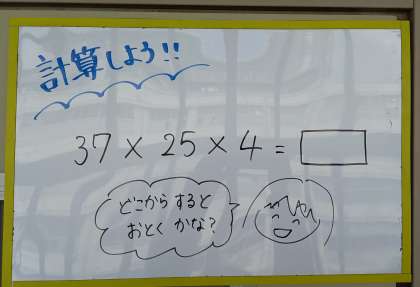 計算しよう!!
37 × 25 × 4 =
どこから すると
おとく かな?